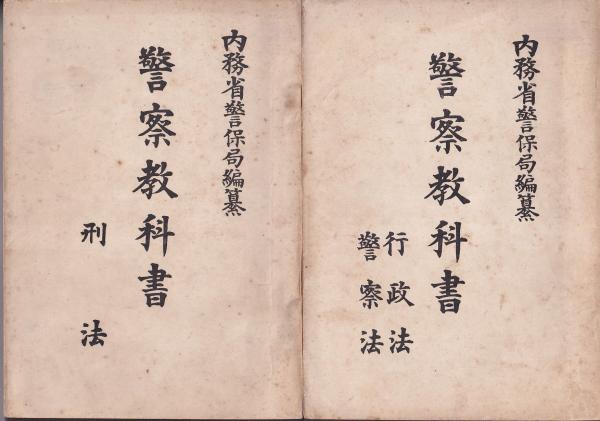 内務省警保局編纂
警察教科書
行政法
警察法
内務省警保局編纂
警察教科書
刑法